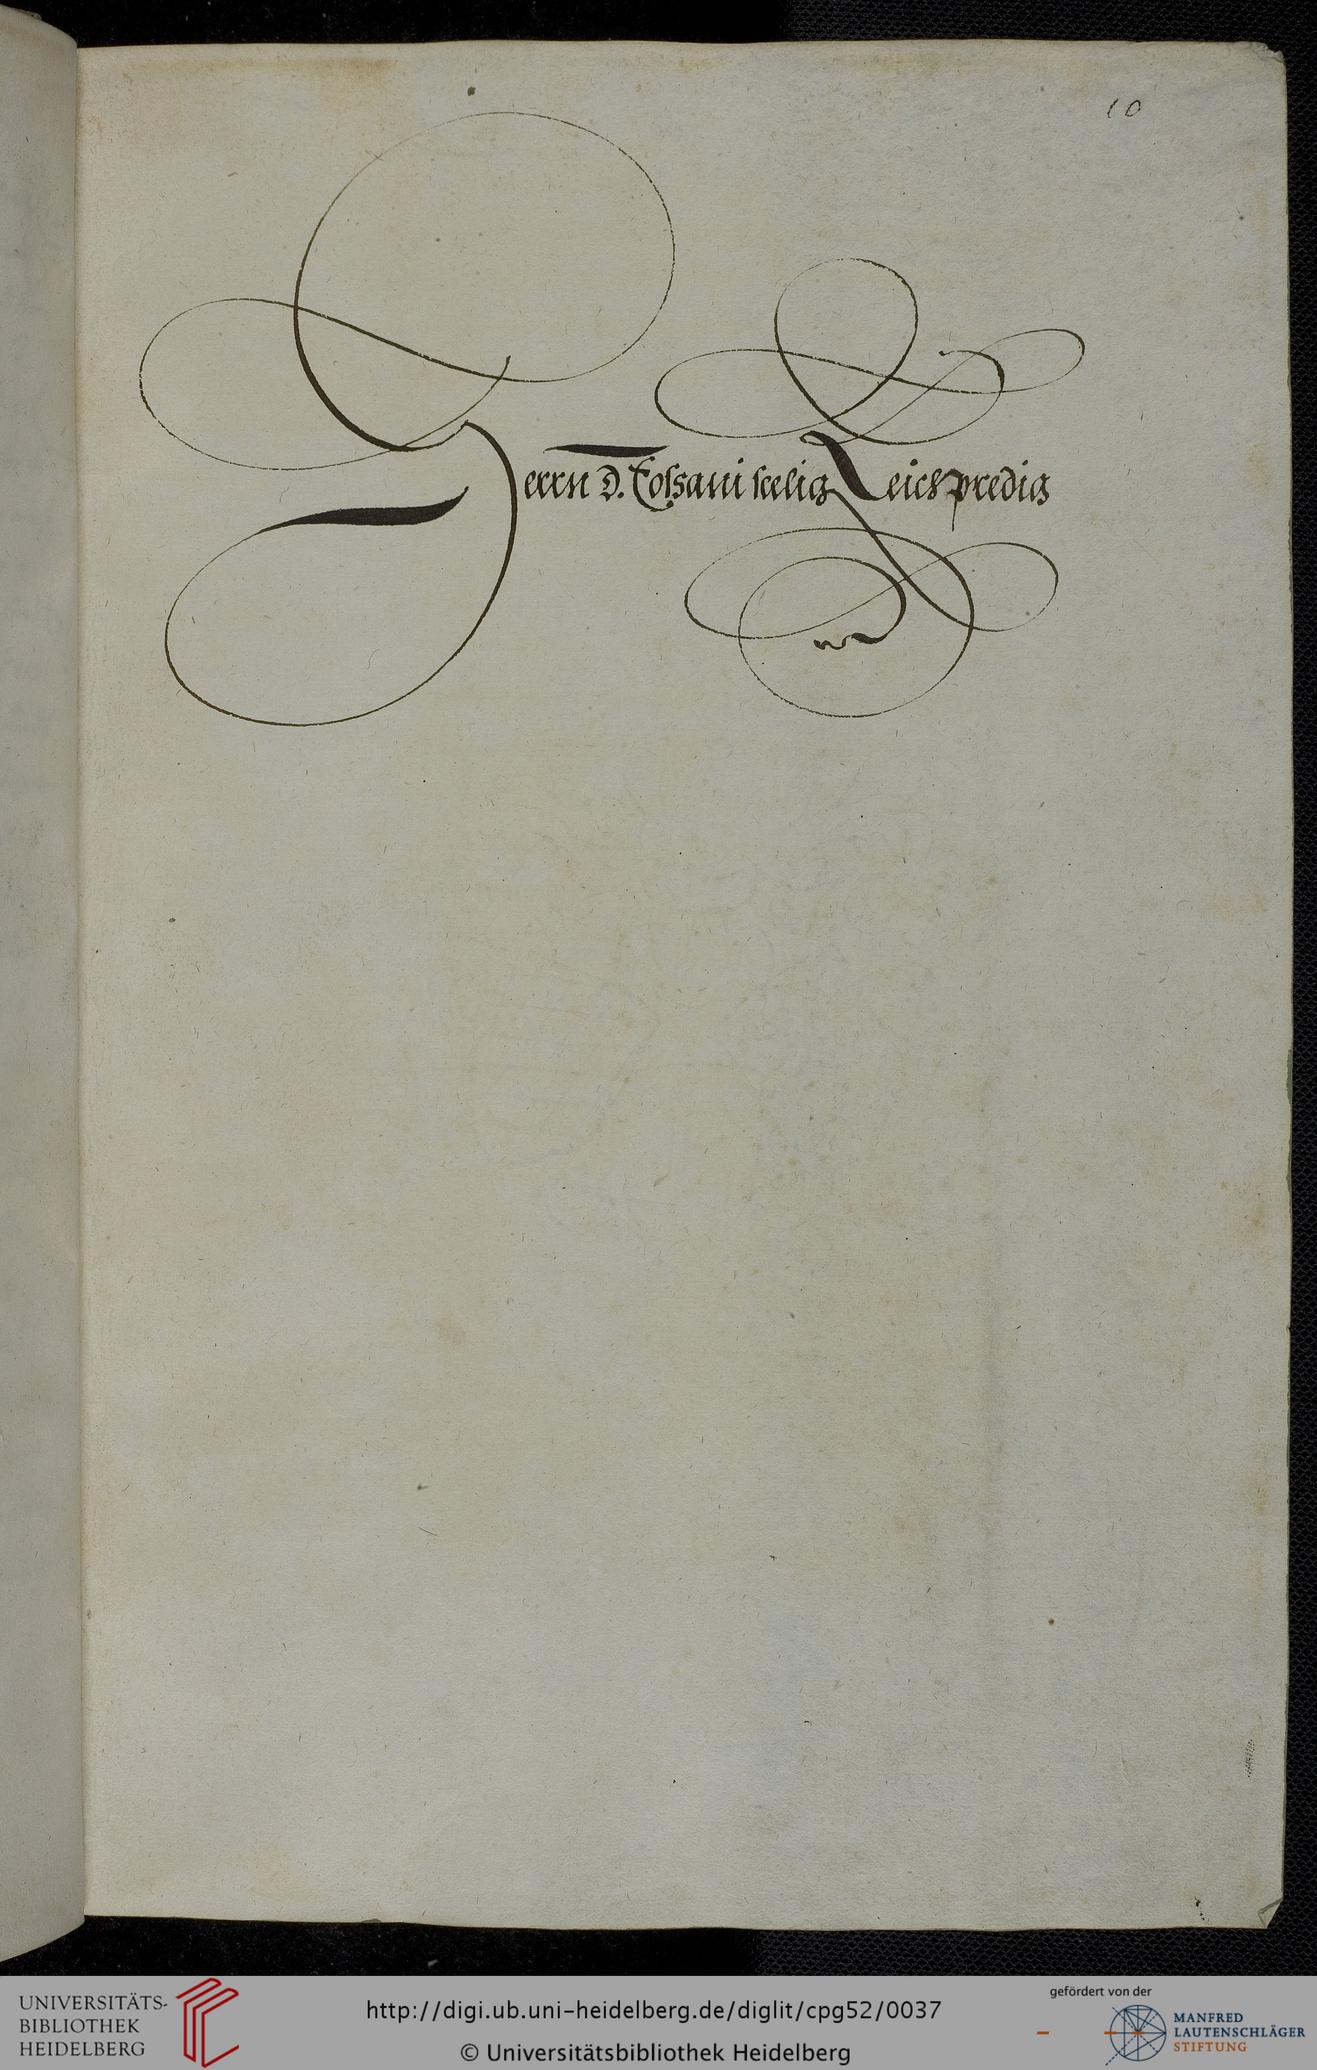 10
Herrn D. Tossani seelig Leichpredig
UNIVERSITÄTS-
BIBLIOTHEK
HEIDELBERG
http://digi.ub.uni-heidelberg.de/diglit/cpg52/0037
© Universitätsbibliothek Heidelberg
gefördert von der
MANFRED
LAUTENSCHLÄGER
STIFTUNG